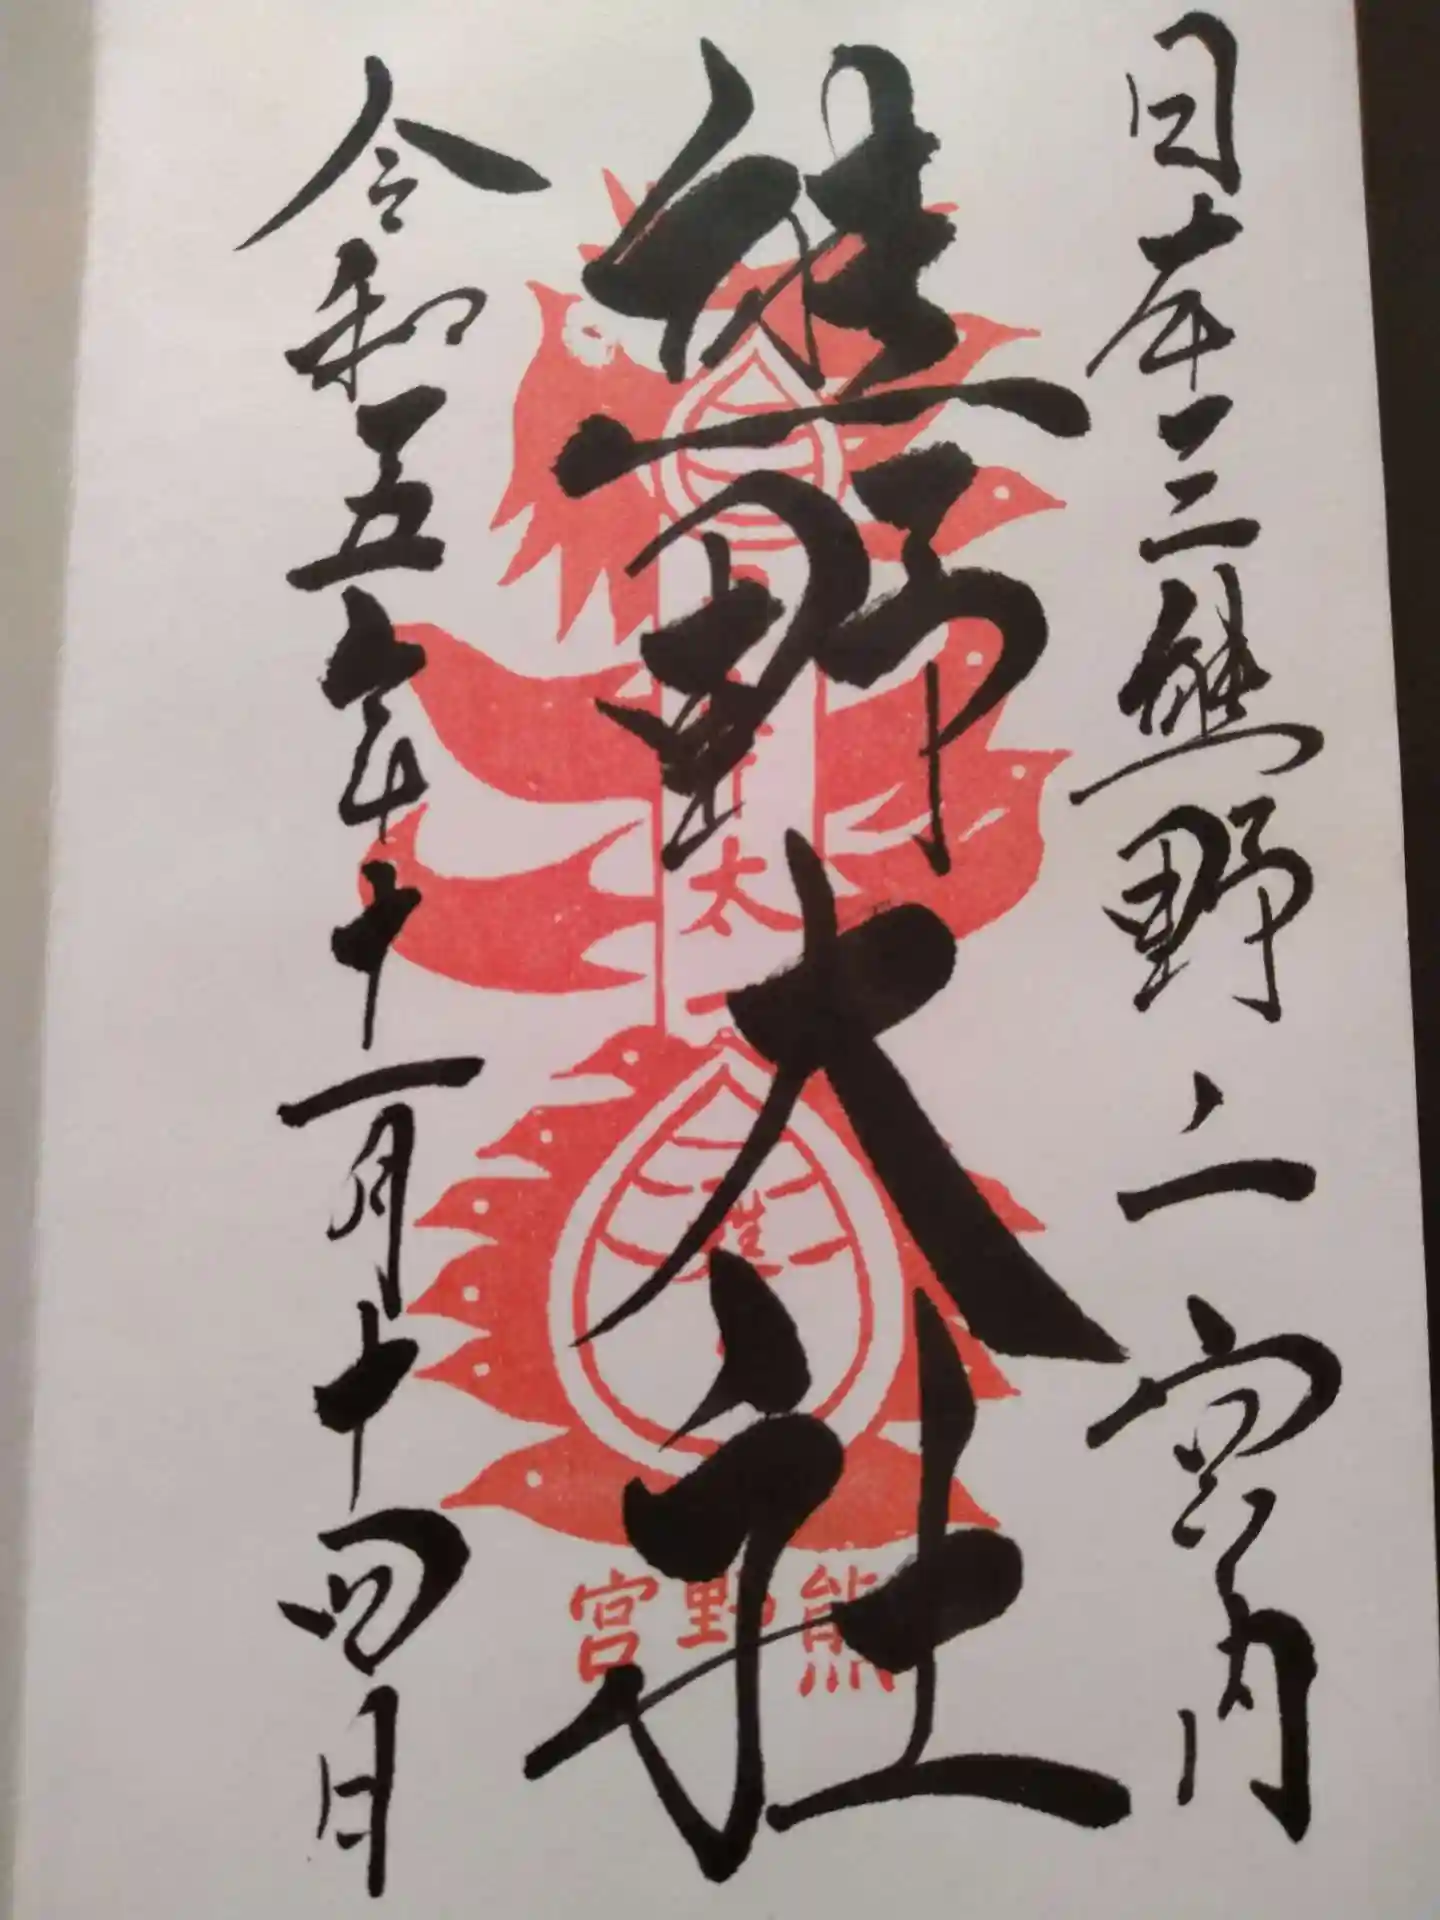 日本三熊野之一宮内
熊野大社
令和五年十一月十四日
太一
熊野宮